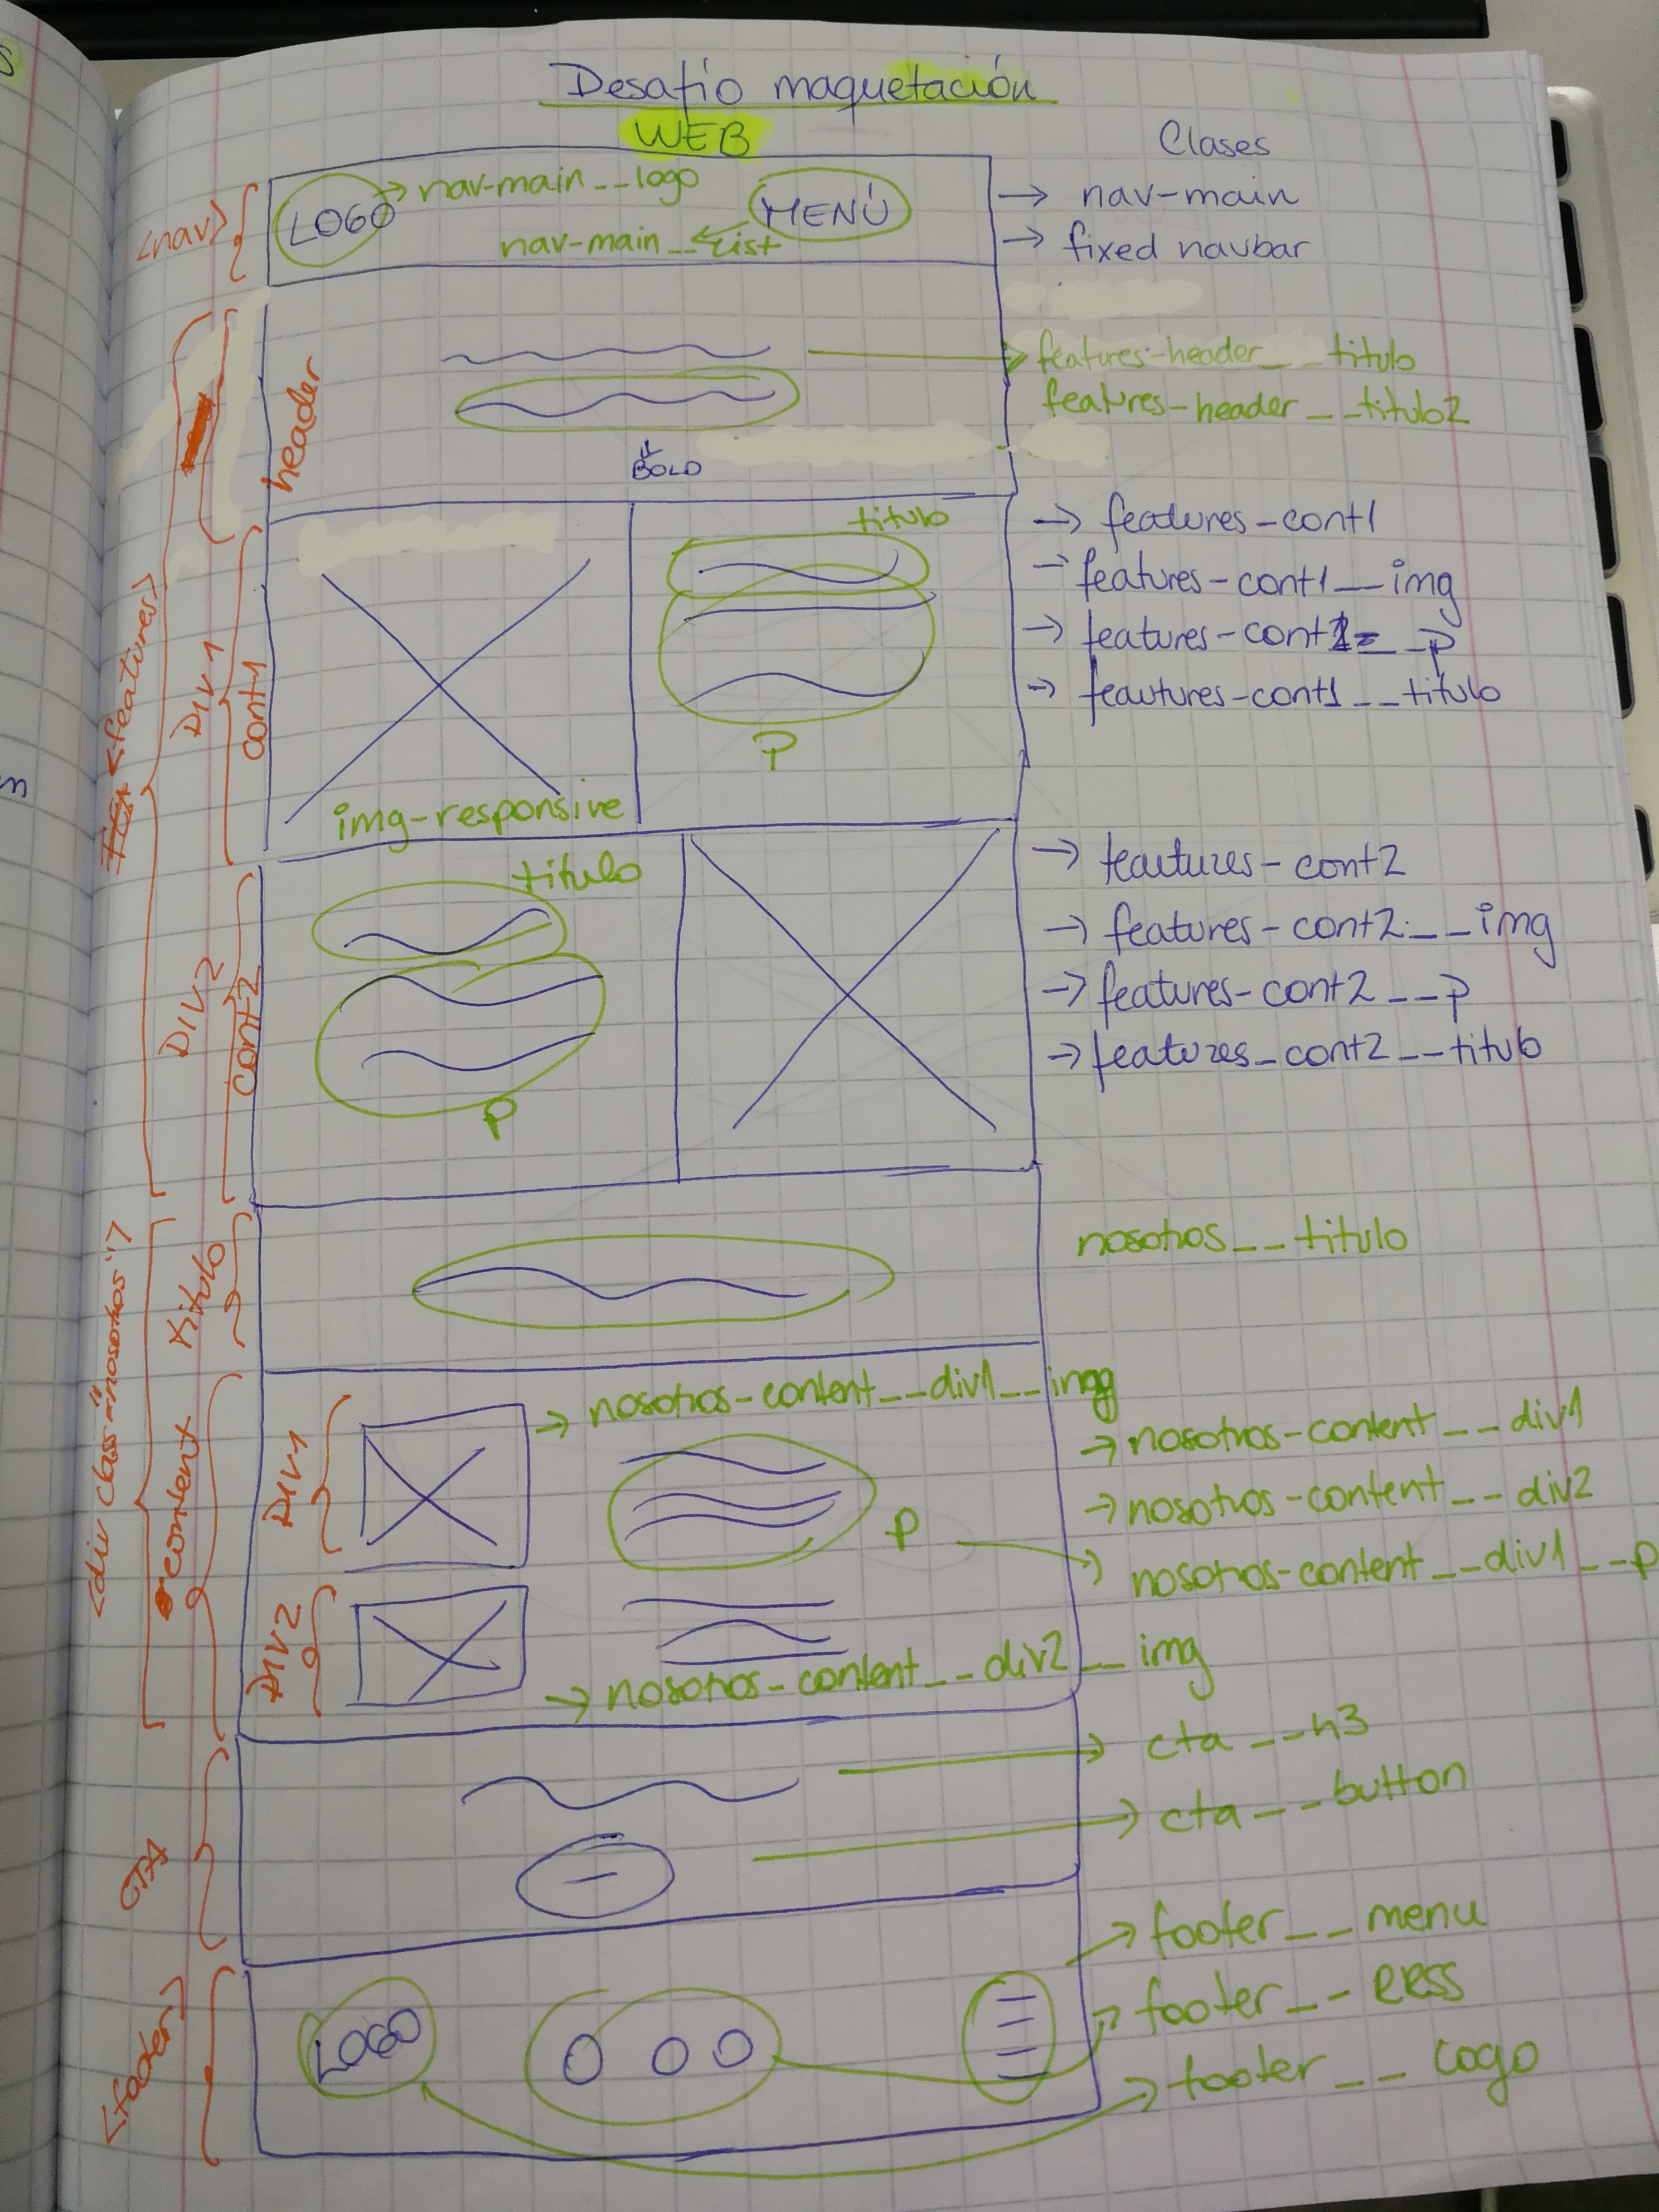 Desafío maquetación
WEB
Clases
<nav>
LOGO
nav-main__logo
MENÚ
nav-main__list
→ nav-main
→ fixed navbar
header
features-header__titulo
features-header__titulo2
BOLD
<features>
DIV1
cont1
titulo
P
img-responsive
→ features-cont1
→ features-cont1__img
→ features-cont1__p
→ feautures-cont1__titulo
DIV2
cont2
titulo
P
→ feautures-cont2
→ features-cont2__img
→ features-cont2__p
→ features_cont2__titulo
<div class="nosotros">
titulo
nosotros__titulo
content
DIV1
→ nosotros-content__div1__img
P
→ nosotros-content__div1
→ nosotros-content__div2
→ nosotros-content__div1__p
DIV2
→ nosotros-content__div2__img
CTA
cta__h3
cta__button
<footer>
LOGO
footer__menu
footer__RRSS
footer__logo